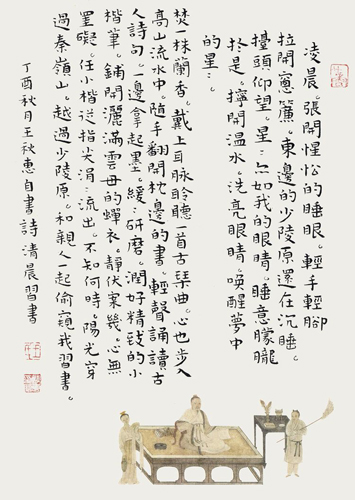 凌晨。張開惺忪的睡眼。輕手輕腳
拉開窗簾。東邊的少陵原還在沉睡。
擡頭仰望。星：亦如我的眼睛。睡意朦朧
於是。擰開溫水。洗亮眼睛。喚醒夢中
的星：。
焚一株蘭香。戴上耳脉聆聽一首古琴曲。心也步入
高山流水中。隨手翻開枕邊的書。輕聲誦讀古
人詩句。一邊拿起墨。緩：研磨。潤好精致的小
楷筆。鋪開灑滿雲母的蟬衣。靜伏案幾。心無
罣礙。任小楷從指尖涓：流出。不知何時。陽光穿
過秦嶺山。越過少陵原。和親人一起偷窺我習書。
丁酉秋月王秋惠自書詩清晨習書